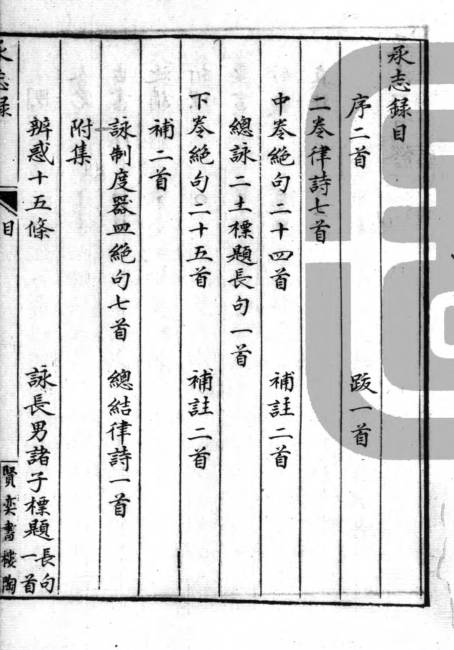 承志録目
序二首 跋一首
二卷律詩七首
中卷絶句二十四首 補註二首
總詠二土標題長句一首
下卷絶句二十五首 補註二首
補二首
詠制度器皿絶句七首 總結律詩一首
附集
辨惑十五條 詠長男諸子標題長句一首
承志録
目
賢奕書樓陶